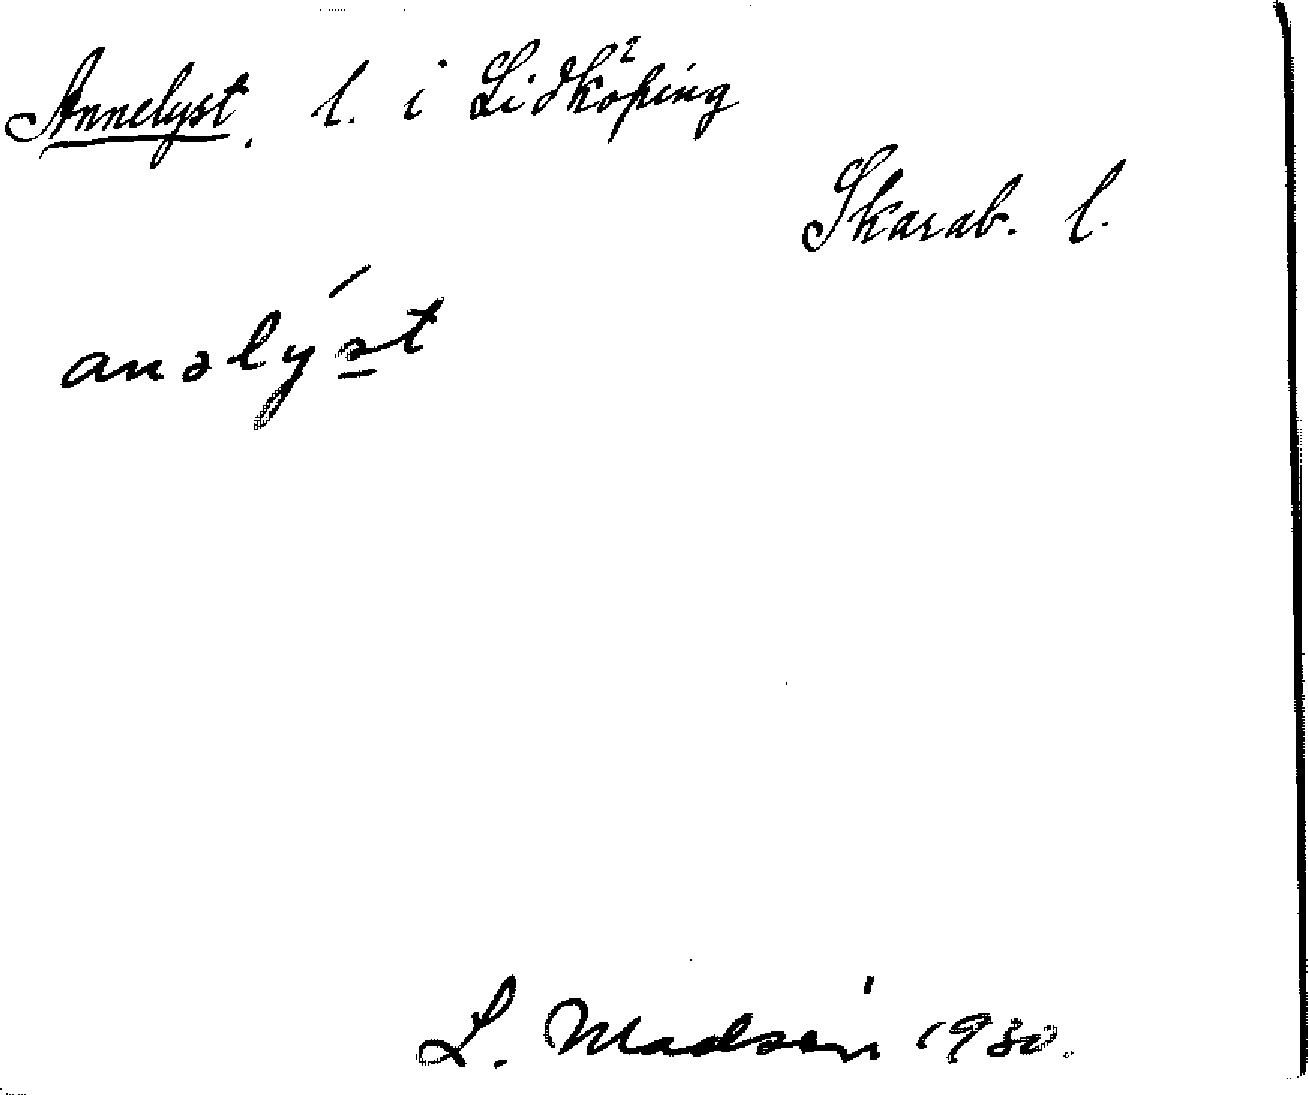 Annelyst. l. i Lidköping
Skarab. l.
anəlýst
L. Madsén 1930.